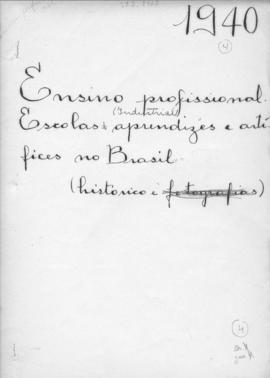 1940
4
Ensino profissional.
(Industriaes)
Escolas de aprendizes e artí
fices no Brasil.
(historico e fotografias)
4